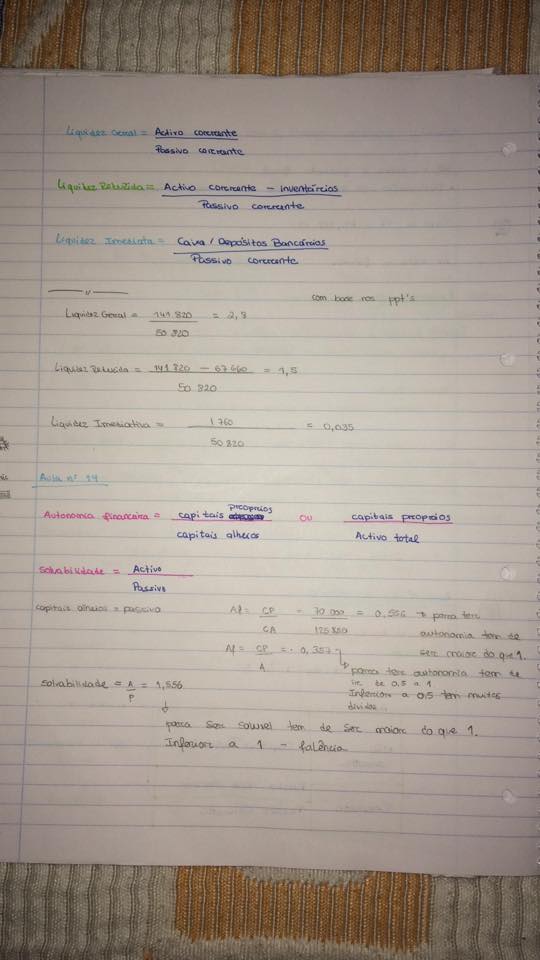 Liquidez Geral = Activo corrente
Passivo corrente
Liquidez Reduzida = Activo corrente - inventários
Passivo corrente
Liquidez Imediata = Caixa / Depósitos Bancários
Passivo corrente
com base nos ppt's
Liquidez Geral = 141 820 = 2,8
50 820
Liquidez Reduzida = 141 820 - 67 660 = 1,5
50 820
Liquidez Imediativa = 1 760 = 0,035
50 820
Aula nº 14
Autonomia financeira = capitais próprios ou capitais próprios
capitais alheios Activo total
Solvabilidade = Activo
Passivo
capitais alheios = passivo Af = CP = 70 000 = 0,556 → para ter
CA 125 860 autonomia tem de
ser maior do que 1.
Af = CP = 0,357
A
para ter autonomia tem de
ir de 0,5 a 1
Inferior a 0,5 tem muitas
dívidas
Solvabilidade = A = 1,556
P
para ser solúvel tem de ser maior do que 1.
Inferior a 1 - falência